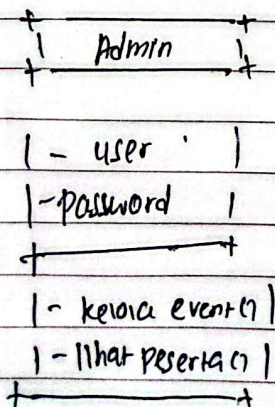 Admin
- user
- password
- kelola event()
- lihat peserta()